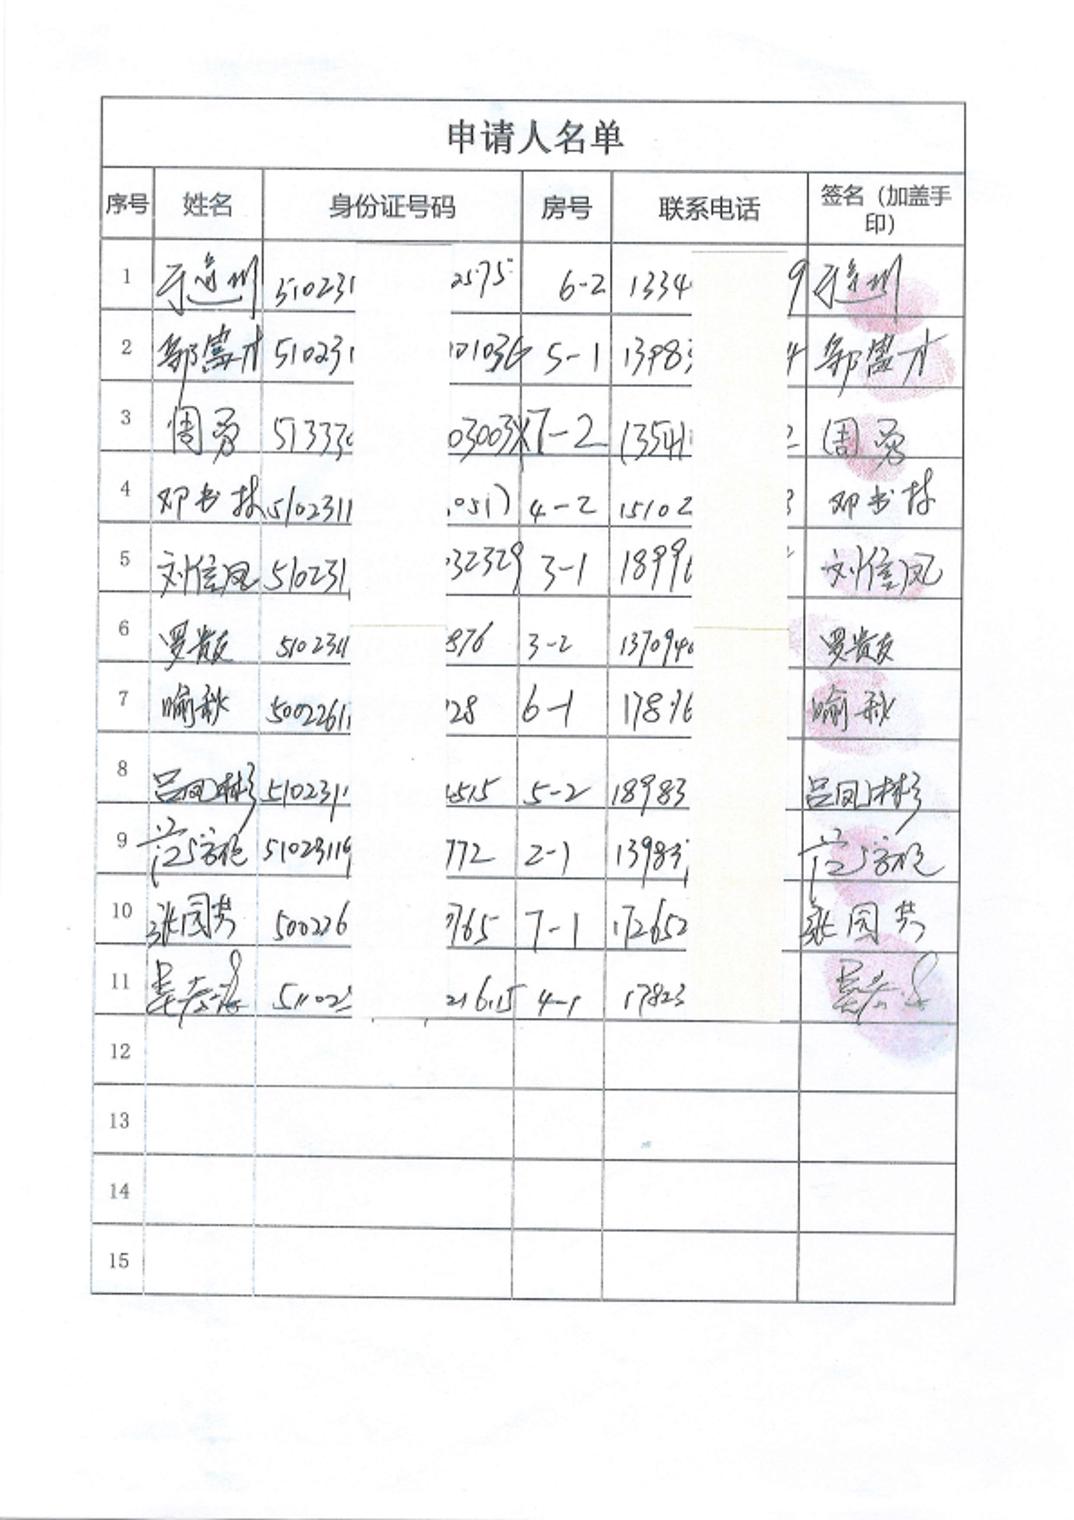 申请人名单
序号 姓名 身份证号码 房号 联系电话 签名（加盖手印）
1 510231 2575 6-2 1334 9
2 510231 101036 5-1 13983 4
3 周勇 513330 03003X 7-2 13541 2 周勇
4 邓书林 5102311 051 4-2 15102 3 邓书林
5 刘信凤 510231 032329 3-1 1899 刘信凤
6 罗贵友 5102311 876 3-2 137094 罗贵友
7 喻秋 5002261 28 6-1 17816 喻秋
8 吕凤彬 510231 4515 5-2 18983 吕凤彬
9 51023119 772 2-1 13983
10 张国芬 500226 765 7-1 172652 张国芬
11 51102 21615 4-1 17823
12
13
14
15